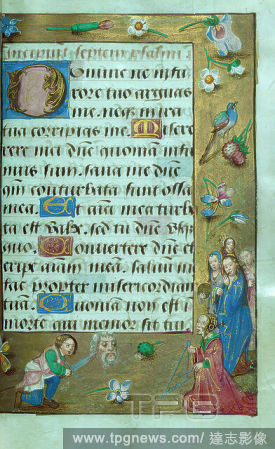 Incipiunt septem psalmi
Domine ne in fu
rore tuo arguas
me. neqz in ira
tua corripias me. Mise
rere mei dne quoniam infir
mus sum. sana me dne
qm conturbata sunt ossa
mea. Et aia mea turba
ta est valde. sed tu dne vsqz
quo. Convertere dne et
eripe aiam meam. saluu
fac propter misericordiā
tuā. Quoniam non est in
morte qui memor sit tui
TPG
www.tpgnews.com/達志影像